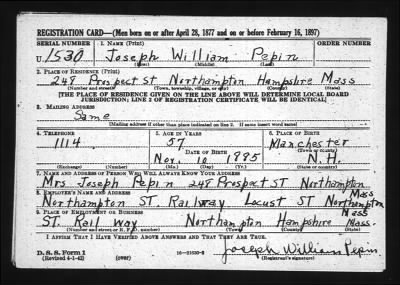 REGISTRATION CARD—(Men born on or after April 28, 1877 and on or before February 16, 1897)
SERIAL NUMBER 1. NAME (Print) ORDER NUMBER
U 1530 Joseph William Pepin
(First) (Middle) (Last)
2. PLACE OF RESIDENCE (Print)
248 Prospect St Northampton Hampshire Mass
(Number and street) (Town, township, village, or city) (County) (State)
[THE PLACE OF RESIDENCE GIVEN ON THE LINE ABOVE WILL DETERMINE LOCAL BOARD
JURISDICTION; LINE 2 OF REGISTRATION CERTIFICATE WILL BE IDENTICAL]
3. MAILING ADDRESS
Same
[Mailing address if other than place indicated on line 2. If same insert word same]
4. TELEPHONE 5. AGE IN YEARS 6. PLACE OF BIRTH
1114 57 Manchester
DATE OF BIRTH (Town or county)
Nov. 10 1885 N.H.
(Exchange) (Number) (Mo.) (Day) (Yr.) (State or country)
7. NAME AND ADDRESS OF PERSON WHO WILL ALWAYS KNOW YOUR ADDRESS
Mrs Joseph Pepin 248 Prospect ST Northampton Mass
8. EMPLOYER'S NAME AND ADDRESS
Northampton ST. Railway Locust ST Northampton Mass
9. PLACE OF EMPLOYMENT OR BUSINESS
ST. Rail way Northampton Hampshire Mass.
(Number and street or R. F. D. number) (Town) (County) (State)
I AFFIRM THAT I HAVE VERIFIED ABOVE ANSWERS AND THAT THEY ARE TRUE.
D. S. S. Form 1
(Revised 4-1-42) (over) Joseph William Pepin
(Registrant's signature)